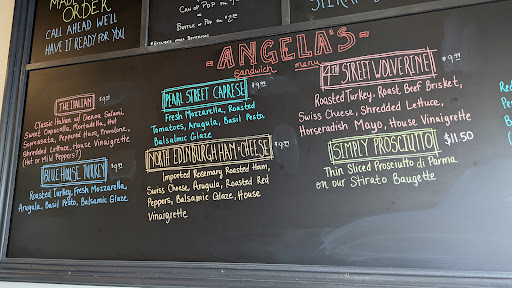 ORDER
CALL AHEAD WE'LL
HAVE IT READY FOR YOU
CAN OF POP
BOTTLE OF POP
ANGELA'S
Sandwich menu
THE ITALIAN $9.99
Classic Italian w/ Genoa Salami,
Sweet Capacolla, Mortadella, Hot
Sopressata, Peppered Ham, Provolone,
Shredded Lettuce, House Vinaigrette
(Hot or Mild Peppers?)
BLUE HOUSE TURKEY $9.99
Roasted Turkey, Fresh Mozzarella,
Arugula, Basil Pesto, Balsamic Glaze
PEARL STREET CAPRESE $9.99
Fresh Mozzarella, Roasted
Tomatoes, Arugula, Basil Pesto
Balsalmic Glaze
NORTH EDINBURGH HAM+CHEESE $9.99
Imported Rosemary Roasted Ham,
Swiss Cheese, Arugula, Roasted Red
Peppers, Balsamic Glaze, House
Vinaigrette
4TH STREET WOLVERINE $9.99
Roasted Turkey, Roast Beef Brisket,
Swiss Cheese, Shredded Lettuce,
Horseradish Mayo, House Vinaigrette
SIMPLY PROSCIUTTO $11.50
Thin Sliced Prosciutto di Parma
on our Stirato Baugette